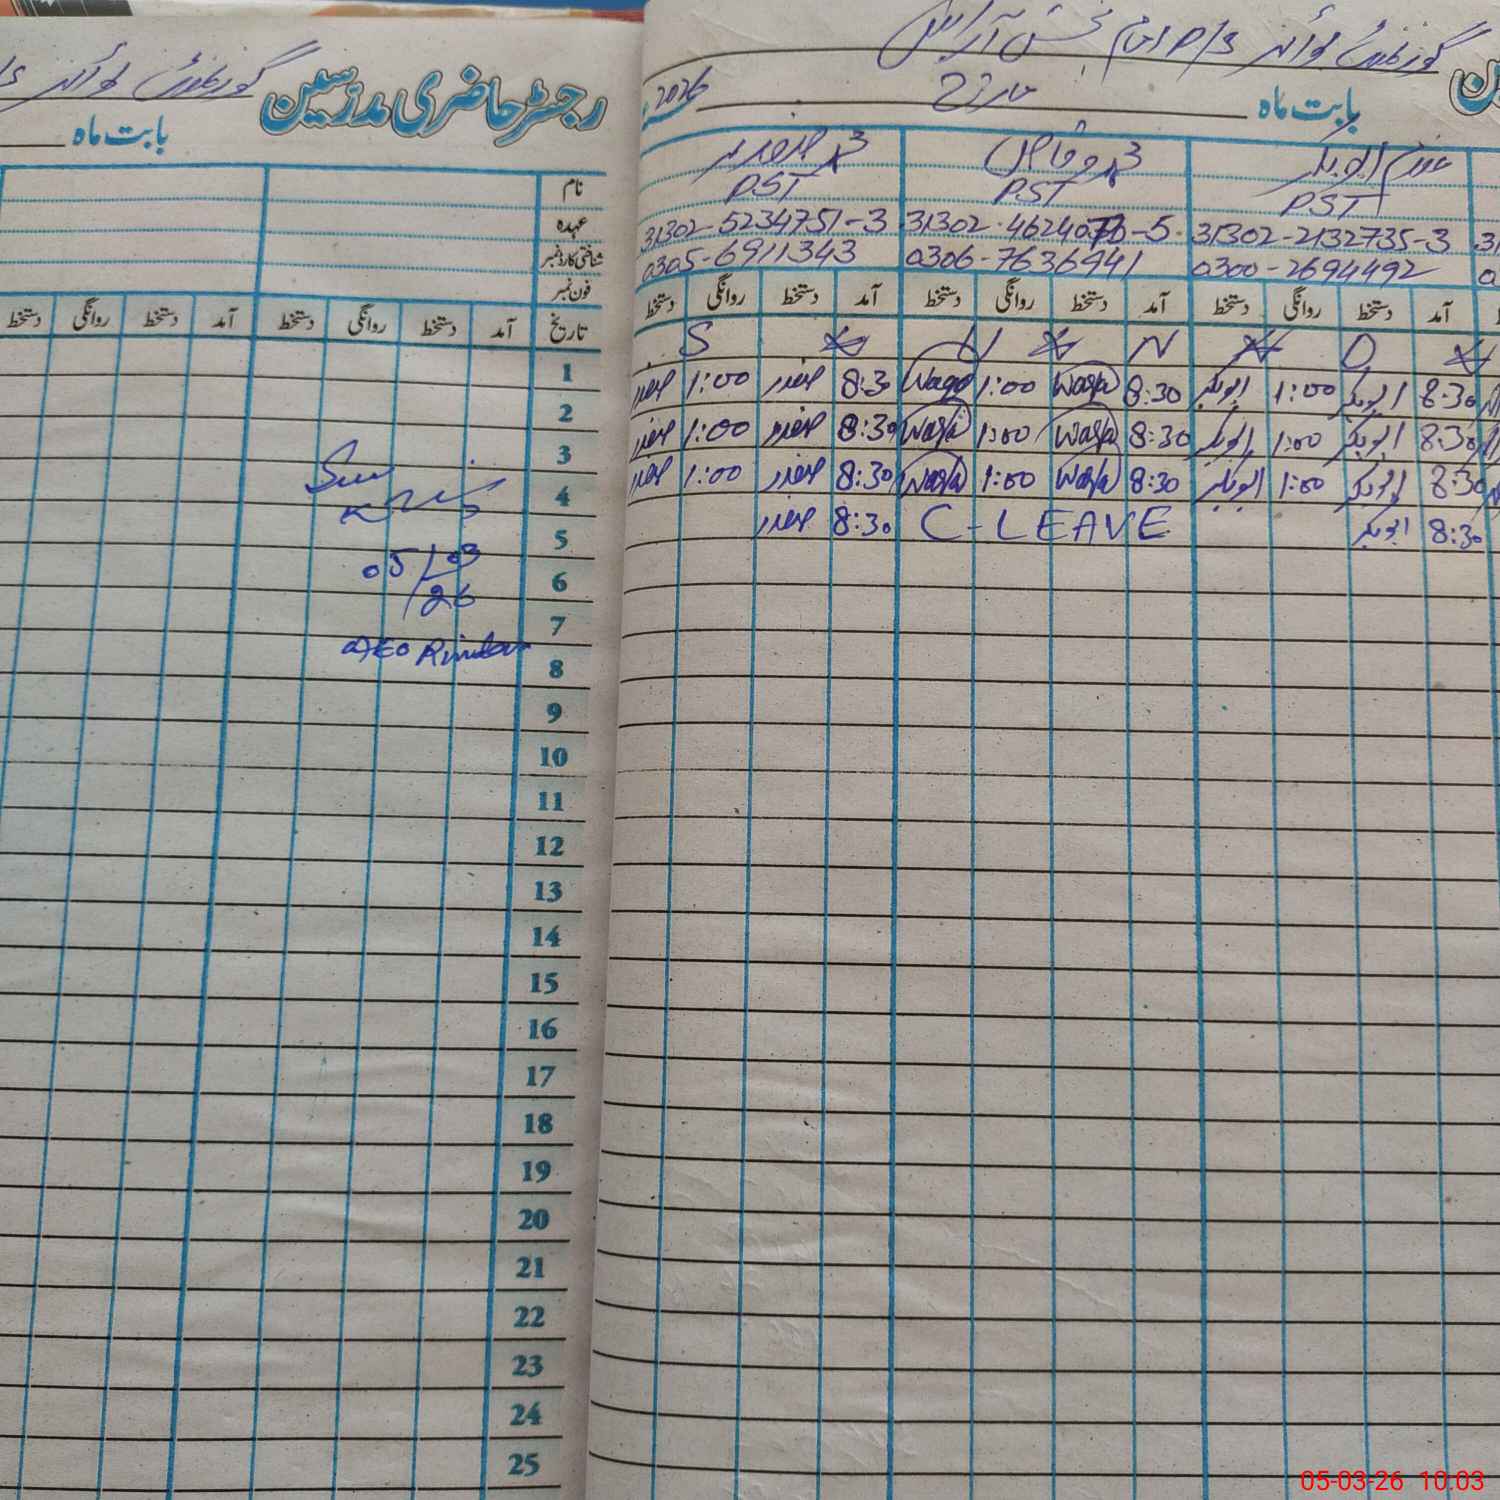 رجسٹر حاضری مدرسین
بابت ماہ
نام
عہدہ
شناختی کارڈ نمبر
فون نمبر
تاریخ آمد دستخط روانگی دستخط آمد دستخط روانگی دستخط
1
2
3
4
5
05/03/26
6
7
AEO
8
9
10
11
12
13
14
15
16
17
18
19
20
21
22
23
24
25
گورنمنٹ بوائز
بابت ماہ مارچ 2026
PST PST PST
31302-2132735-3 31302-5234751-3
0300-2694492 0306-7636941 0305-6911343
آمد دستخط روانگی دستخط آمد دستخط روانگی دستخط آمد دستخط روانگی دستخط
S U N D
8:30 ابوبکر 1:00 ابوبکر 8:30 Waqas 1:00 Waqas 8:3 صفدر 1:00 صفدر
8:30 ابوبکر 1:00 ابوبکر 8:30 Waqas 1:00 Waqas 8:30 صفدر 1:00 صفدر
8:30 ابوبکر 1:00 ابوبکر 8:30 Waqas 1:00 Waqas 8:30 صفدر 1:00 صفدر
8:30 ابوبکر C-LEAVE 8:30 صفدر
05-03-26 10.03